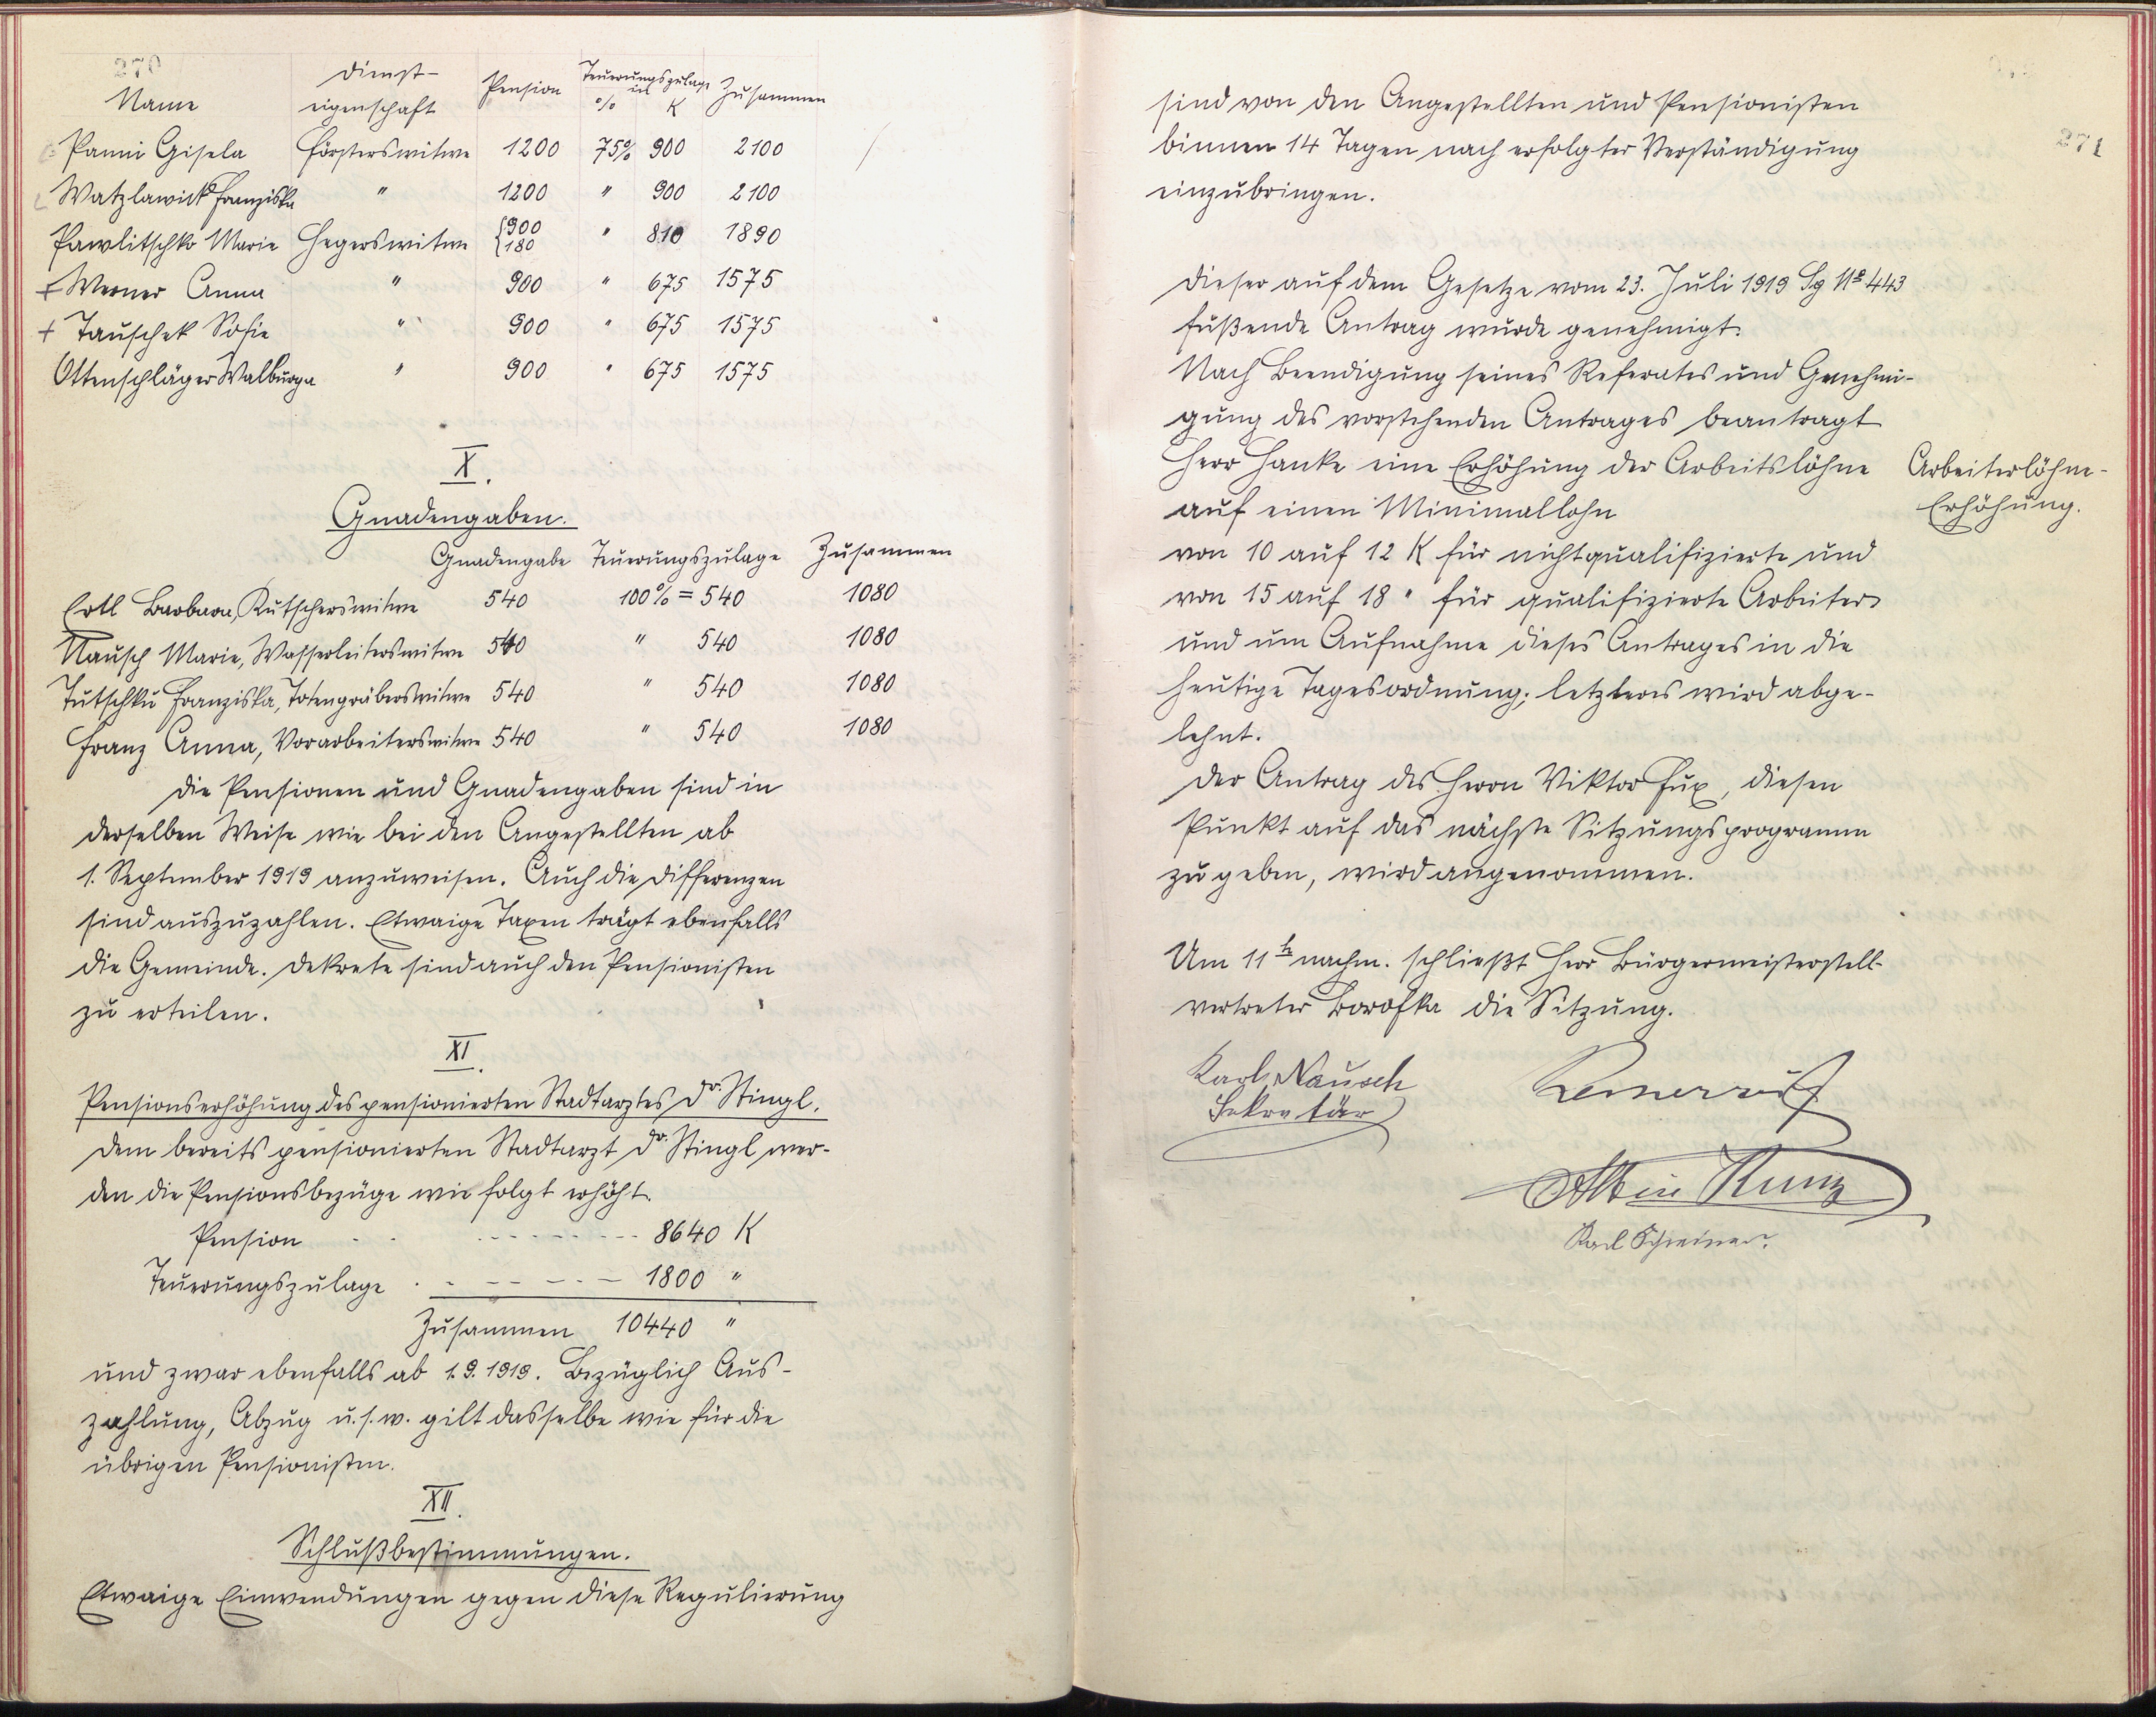 270
Name Dienst- eigenschaft Pension Teuerungszulage in % K Zusammen
Panni Gisela Försterswitwe 1200 75% 900 2100
Watzlawick Franziska " 1200 " 900 2100
Pawlitschko Marie Hegerswitwe {900 {180 " 810 1890
+ Werner Anna " 900 " 675 1575
+ Tauschek Sofie " 900 " 675 1575
Ottenschläger Walburga " 900 " 675 1575
X.
Gnadengaben.
Gnadengabe Teuerungszulage Zusammen
Ertl Barbara, Kutscherswitwe 540 100% = 540 1080
Nausch Marie, Wasserleiterswitwe 540 " 540 1080
Tutschku Franziska, Totengräberswitwe 540 " 540 1080
Franz Anna, Vorarbeiterswitwe 540 " 540 1080
Die Pensionen und Gnadengaben sind in
derselben Weise wie bei den Angestellten ab
1. September 1919 anzuweisen. Auch die Differenzen
sind auszuzahlen. Etwaige Taxen trägt ebenfalls
die Gemeinde. Dekrete sind auch den Pensionisten
zu erteilen.
XI.
Pensionserhöhung des pensionierten Stadtarztes Dr. Stingl.
Dem bereits pensionierten Stadtarzt Dr. Stingl wer-
den die Pensionsbezüge wie folgt erhöht.
Pension 8640 K
Teuerungszulage 1800 "
Zusammen 10440 "
und zwar ebenfalls ab 1.9.1919. Bezüglich Aus-
zahlung, Abzug u.s.w. gilt dasselbe wie für die
übrigen Pensionisten.
XII.
Schlußbestimmungen.
Etwaige Einwendungen gegen diese Regulierung
271
sind von den Angestellten und Pensionisten
binnen 14 Tagen nach erfolgter Verständigung
einzubringen.
Dieser auf dem Gesetze vom 23. Juli 1919 Sg No 443
fußende Antrag wurde genehmigt.
Nach Beendigung seines Referates und Genehmi-
gung des vorstehenden Antrages beantragt
Herr Hanke eine Erhöhung der Arbeitslöhne
auf einen Minimallohn
Arbeiterlöhne-
Erhöhung.
von 10 auf 12 K für nichtqualifizierte und
von 15 auf 18 " für qualifizierte Arbeiter
und um Aufnahme dieses Antrages in die
heutige Tagesordnung; letzteres wird abge-
lehnt.
Der Antrag des Herrn Viktor Fux, diesen
Punkt auf das nächste Sitzungsprogramm
zu geben, wird angenommen.
Um 11 h nachm. schließt Herr Bürgermeisterstell-
vertreter Borofka die Sitzung.
Karl Nausch
Sekretär
Albin Kunz
Karl Schreiner.